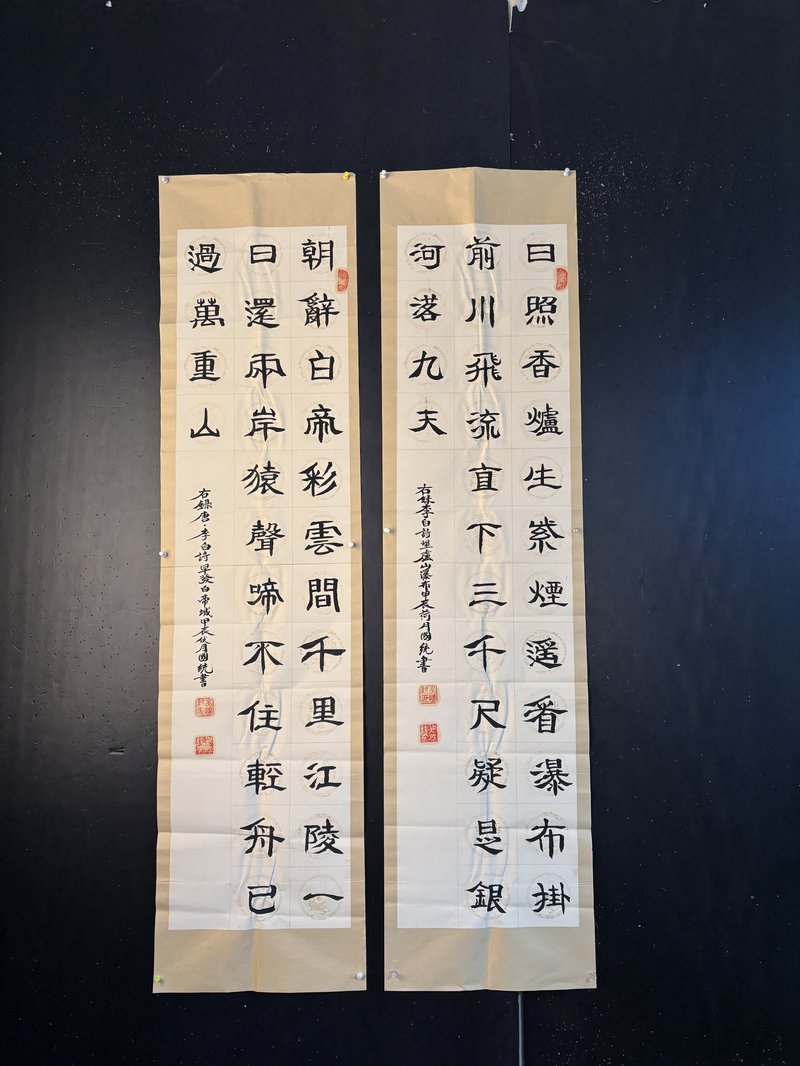 日照香爐生紫煙遥看瀑布掛
前川飛流直下三千尺疑是銀
河落九天
右李白詩望廬山瀑布甲辰荷月國統書
朝辭白帝彩雲間千里江陵一
日還兩岸猿聲啼不住輕舟已
過萬重山
右錄唐·李白詩早發白帝城甲辰伏月國統書